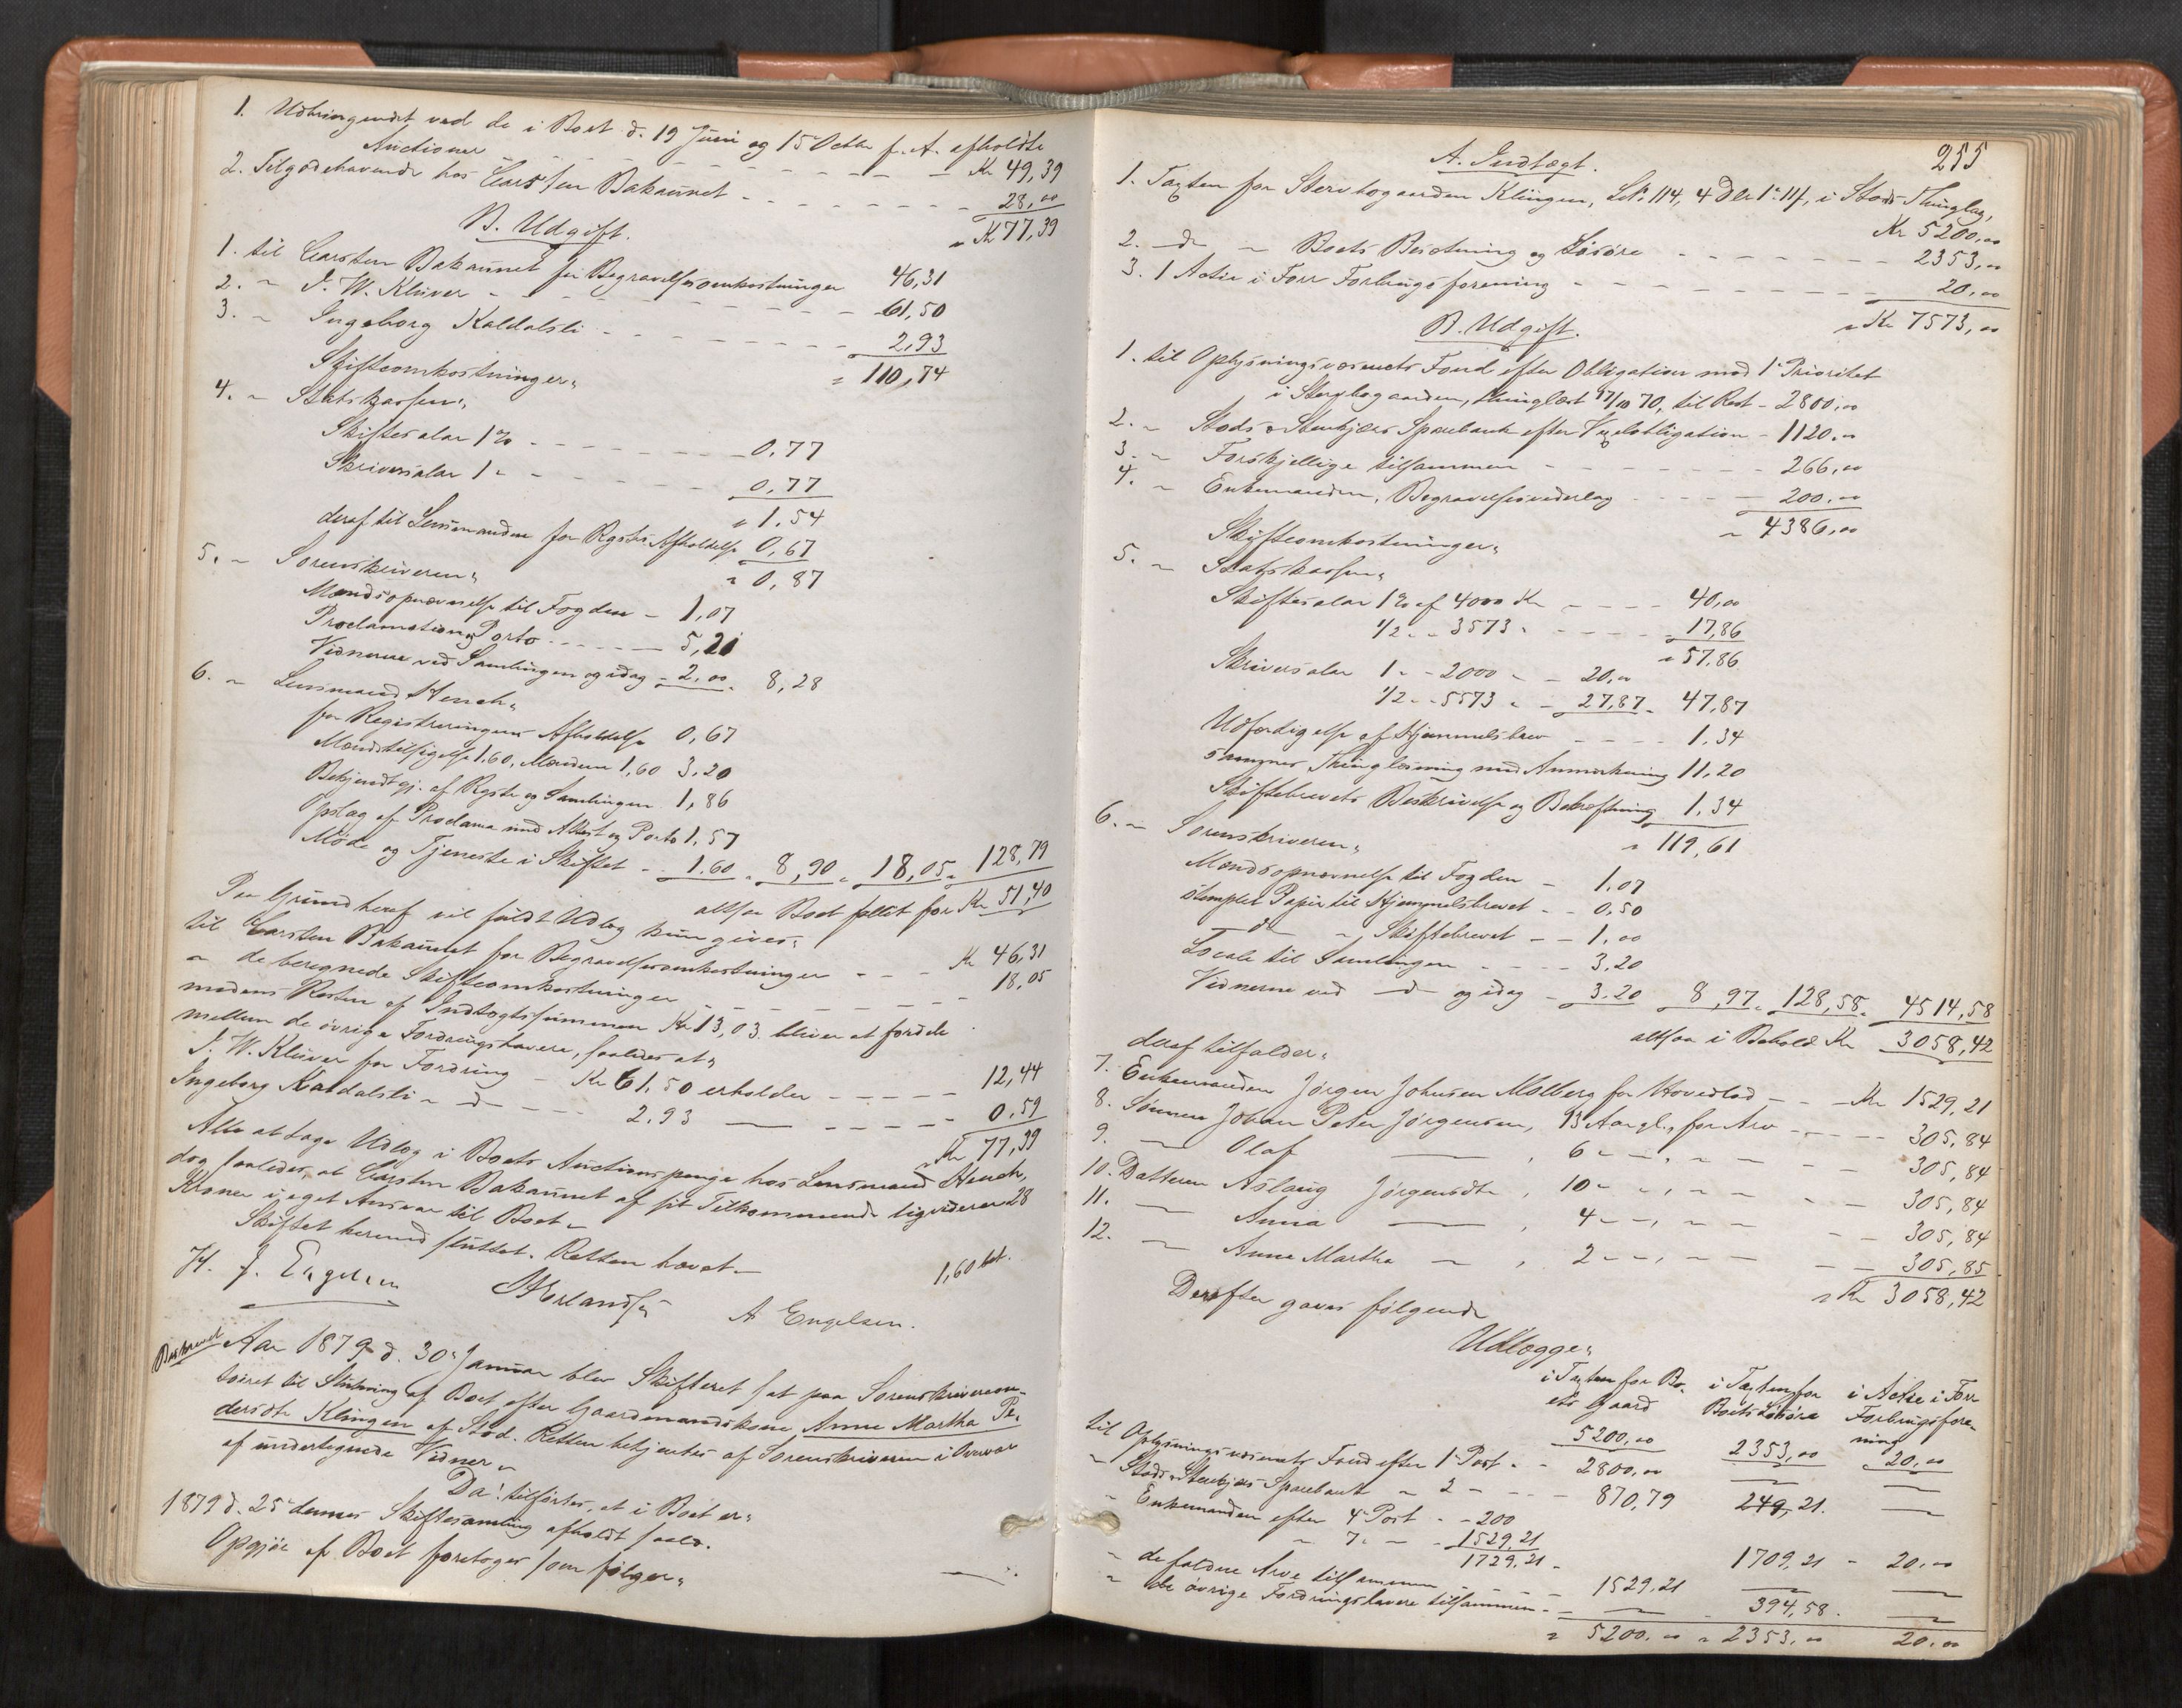 1. Udbringendet ved de i Boet d. 19 Juni og 15 Octbr f. A. afholdte
Auctioner - - - - - - Kr 49,39
2. Tilgodehavende hos Carsten Bakaunet - - - - - - 28,00
" Kr 77,39
B. Udgift.
1. til Carsten Bakaunet for Begravelsesomkostninger 46,31
2. " J. W. Klüver - - - - - - 61,50
3. " Ingeborg Kaldalsli - - - - - - 2,93
" 110,74
Skifteomkostninger:
4. " Statskassen:
Skiftesalar 1% - - - - 0,77
Skriversalar 1 " - - - - 0,77
" 1.54
deraf til Lensmanden for Rgstrs Afholdelse 0,67
" 0,87
5. " Sorenskriveren:
Mandsopnævnelse til Fogden - 1,07
Proclamation og Porto - - - 5,21
Vidnerne ved Samlingen og idag - 2,00. 8,28
6. " Lensmand Hench:
for Registreringens Afholdelse 0,67
Mændstilsigelse 1,60, Mændene 1,60 3,20
Bekjendtgj. af Rgstr og Samlingen 1,86
Opslag af Proclama med Attest og Porto 1,57
Møde og Tjeneste i Skiftet - 1.60 " 8,90 " 18,05 " 128,79
altsaa Boet fallit for Kr 51,40
Paa Grund heraf vil fuldt Udlæg kun gives:
til Carsten Bakaunet for Begravelsesomkostninger - - - Kr 46,31
" de beregnede Skifteomkostninger - - - - - 18,05
medens Resten af Indtægtssummen Kr 13,03 bliver at fordele
mellem de øvrige Fordringshavere, saaledes at:
J. W. Klüver for Fordring - Kr 61,50 erholder - - - - 12,44
Ingeborg Kaldalsli " d - - - 2.93 — - - - - 0,59
" Kr 77,39
Alle at tage Udlæg i Boets Auctionspenge hos Lensmand Hench,
dog saaledes, at Carsten Bakaunet af sit Tilkommende ligviderer 28
Kroner i eget Ansvar til Boet.
Skiftet hermed sluttet. Retten hævet.
1,60 bet.
J. Engelsen A Engelsen.
Beskrevet
Aar 1879 d. 30 Januar blev Skifteret sat paa Sorenskrivercon-
toiret til Slutning af Boet efter Gaardmandskone Anne Martha Pe-
dersdtr Klingen af Stod. Retten betjentes af Sorenskriveren i Overvær
af undertegnede Vidner.
Da: tilførtes, at i Boet er:
1879 d. 25 dennes Skiftesamling afholdt saalv.
Opgjør af Boet foretoges som følger:
255
A. Indtægt.
1. Taxten for Stervbogaarden Klingen, L№ 114, 4 Dlr 1 " 11 ß, i Stods Thinglag,
Kr 5200,00
2. d " Boets Besætning og Løsøre - - - - - 2353,00
3. 1 Actie i Forr Forbrugsforening - - - - - 20,00
" Kr 7573,00
B. Udgift.
1. til Oplysningsvæsenets Fond efter Obligation med 1 Prioritet
i Stervbogaarden, thinglæst 17/10 70, til Rest - 2800,00
2. " Stods & Stenkjærs Sparebank efter Vexelobligation - 1120,00
3. " Forskjellige tilsammen - - - - - 266,00
4. " Enkemanden, Begravelsesvederlag - - - 200,00
" 4386,00
Skifteomkostninger:
5. " Statskassen:
Skiftesalar 1% af 4000 Kr - - - - 40,00
1/2 " " 3573 " - - - - 17,86
" 57,86
Skriversalar 1 " " 2000 " - 20,00
1/2 " " 5573 " - 27,87 " 47,87
Udfærdigelse af Hjemmelsbrev - - - - 1,34
sammes Thinglæsning med Anmærkning 11,20
Skiftebrevets Beskrivelse og Bekræftning 1,34
" 119,61
6. " Sorenskriveren:
Mandsopnævnelse til Fogden - 1,07
stemplet Papir til Hjemmelsbrevet - - 0,50
d " Skiftebrevet - - 1,00
Locale til Samlingen - - - - 3,20
Vidnerne ved d og idag - 3,20 8,97 " 128,58 " 4514,58
altsaa i Behold Kr 3058,42
deraf tilfalder:
7. Enkemanden Jørgen Johnsen Molberg for Hovedlod - - Kr 1529,21
8. Sønnen Johan Peter Jørgensen, 13 Aar gl., for Arv - - - 305,84
9. — Olaf — , 6 " " , " " - - 305,84
10. Datteren Aslaug Jørgensdtr , 10 " " , " " - - 305,84
11. — Anna — , 4 " " , " " - - 305,84
12. — Anne Martha " , 2 " " , " " - - 305,85
" Kr 3058,42
Derefter gaves følgende
Udlægge:
i Taxten for Bo- i Taxten for i Actie i Forr
ets Gaard Boets Løsøre Forbrugsfore-
ning
5200,00 2353,00 20,00
til Oplysningsvæsenets Fond efter 1 Post - - 2800,00 — —
" Stods & Stenkjærs Sparebank " 2 - - - - 870,79 249,21. —
" Enkemanden efter 4 Post - - 200
" 7 " - 1529,21
1729,21 - 1709,21 - 20,00
" de faldne Arve tilsammen - - - - 1529,21 — —
" de øvrige Fordringshavere tilsammen - — 394,58. —
" 5200,00 " 2353,00 20,00